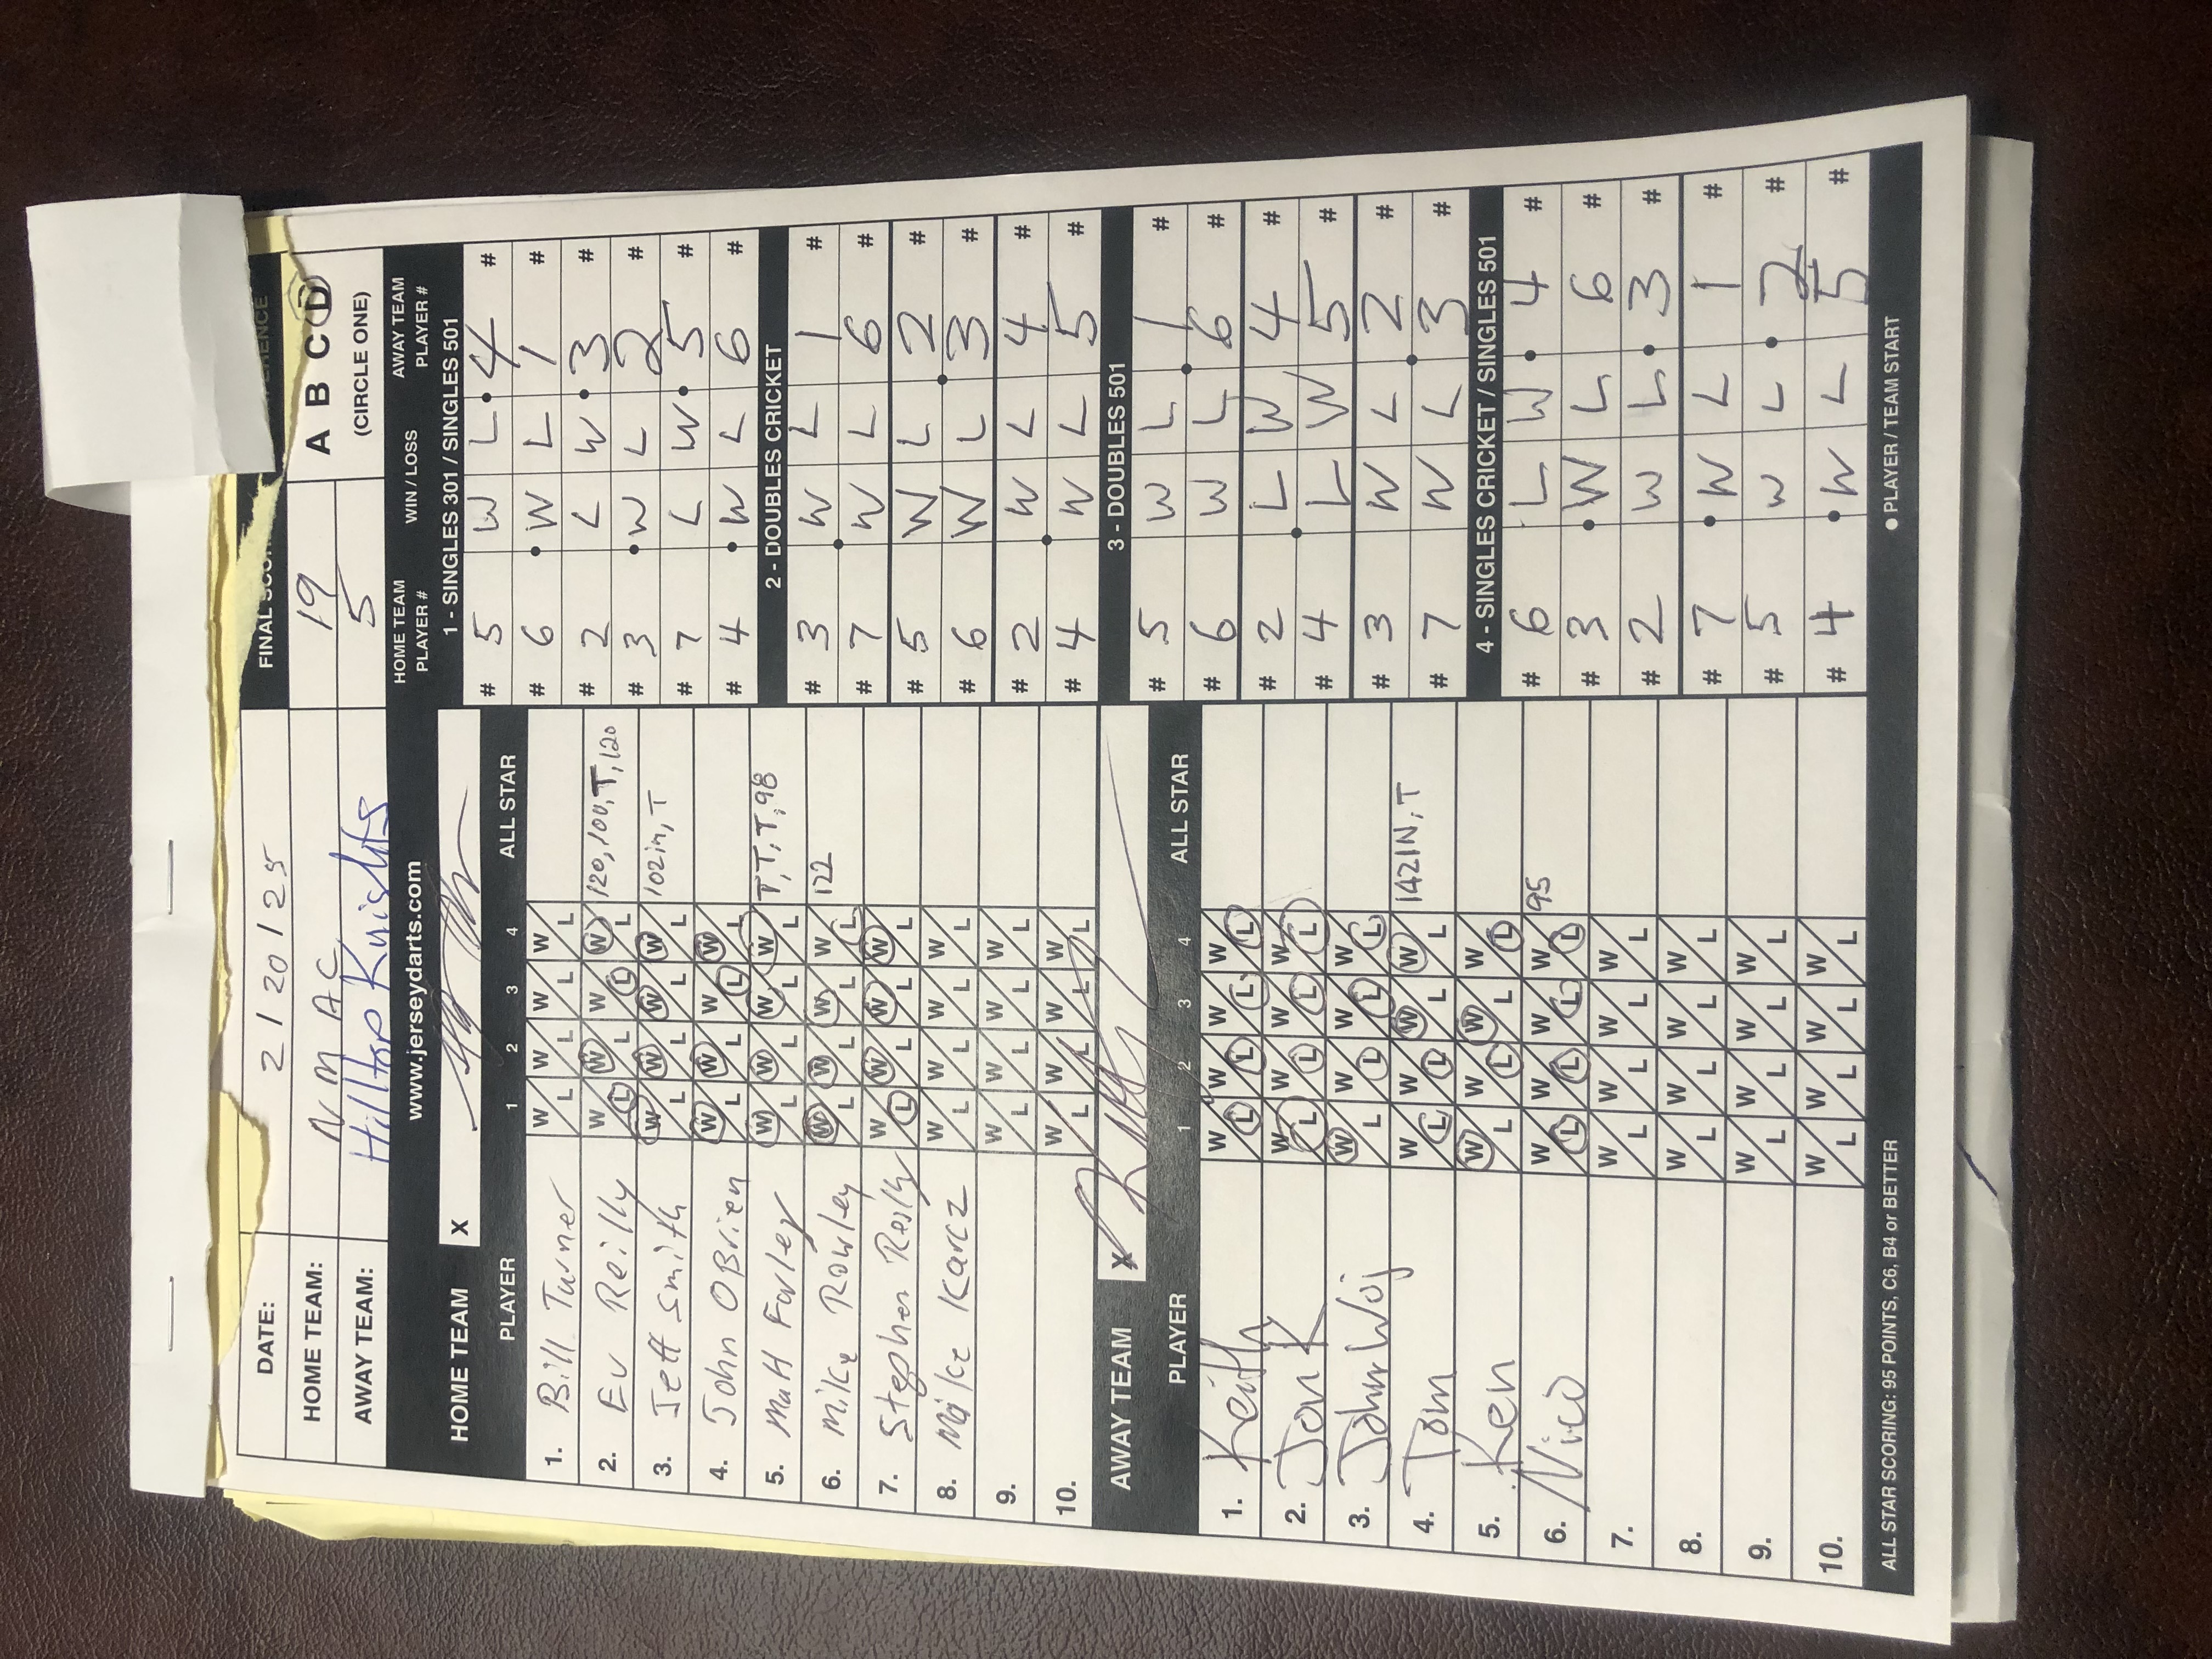 DATE: 2 / 20 / 25 FINAL SCOR ERENCE
HOME TEAM: N M A C 19 A B C D
AWAY TEAM: Hilltop Knights 5 (CIRCLE ONE)
www.jerseydarts.com
HOME TEAM X
PLAYER 1 2 3 4 ALL STAR
1. Bill Turner W L W L W L W L
2. Ev Reilly W L W L W L W L 120, 100, T, 120
3. Jeff Smith W L W L W L W L 102in, T
4. John OBrien W L W L W L W L
5. Matt Farley W L W L W L W L T, T, T, 98
6. Mike Rowley W L W L W L W L 122
7. Stephen Reilly W L W L W L W L
8. Mike Karcz W L W L W L W L
9. W L W L W L W L
10. W L W L W L W L
AWAY TEAM X
PLAYER 1 2 3 4 ALL STAR
1. Keith W L W L W L W L
2. Jon K W L W L W L W L
3. John Woj W L W L W L W L
4. Tom W L W L W L W L 142IN, T
5. Ken W L W L W L W L
6. Nico W L W L W L W L 95
7. W L W L W L W L
8. W L W L W L W L
9. W L W L W L W L
10. W L W L W L W L
ALL STAR SCORING: 95 POINTS, C6, B4 or BETTER
HOME TEAM PLAYER # WIN / LOSS AWAY TEAM PLAYER #
1 - SINGLES 301 / SINGLES 501
# 5 W L 4 #
# 6 W L 1 #
# 2 L W 3 #
# 3 W L 2 #
# 7 L W 5 #
# 4 W L 6 #
2 - DOUBLES CRICKET
# 3 W L 1 #
# 7 W L 6 #
# 5 W L 2 #
# 6 W L 3 #
# 2 W L 4 #
# 4 W L 5 #
3 - DOUBLES 501
# 5 W L 1 #
# 6 W L 6 #
# 2 L W 4 #
# 4 L W 5 #
# 3 W L 2 #
# 7 W L 3 #
4 - SINGLES CRICKET / SINGLES 501
# 6 L W 4 #
# 3 W L 6 #
# 2 W L 3 #
# 7 W L 1 #
# 5 W L 2 #
# 4 W L 5 #
● PLAYER / TEAM START